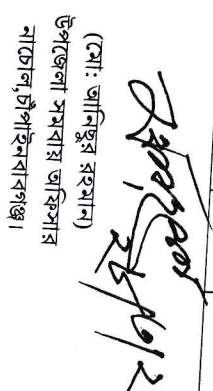 (মো: আনিছুর রহমান)
উপজেলা সমবায় অফিসার
নাচোল,চাঁপাইনবাবগঞ্জ।